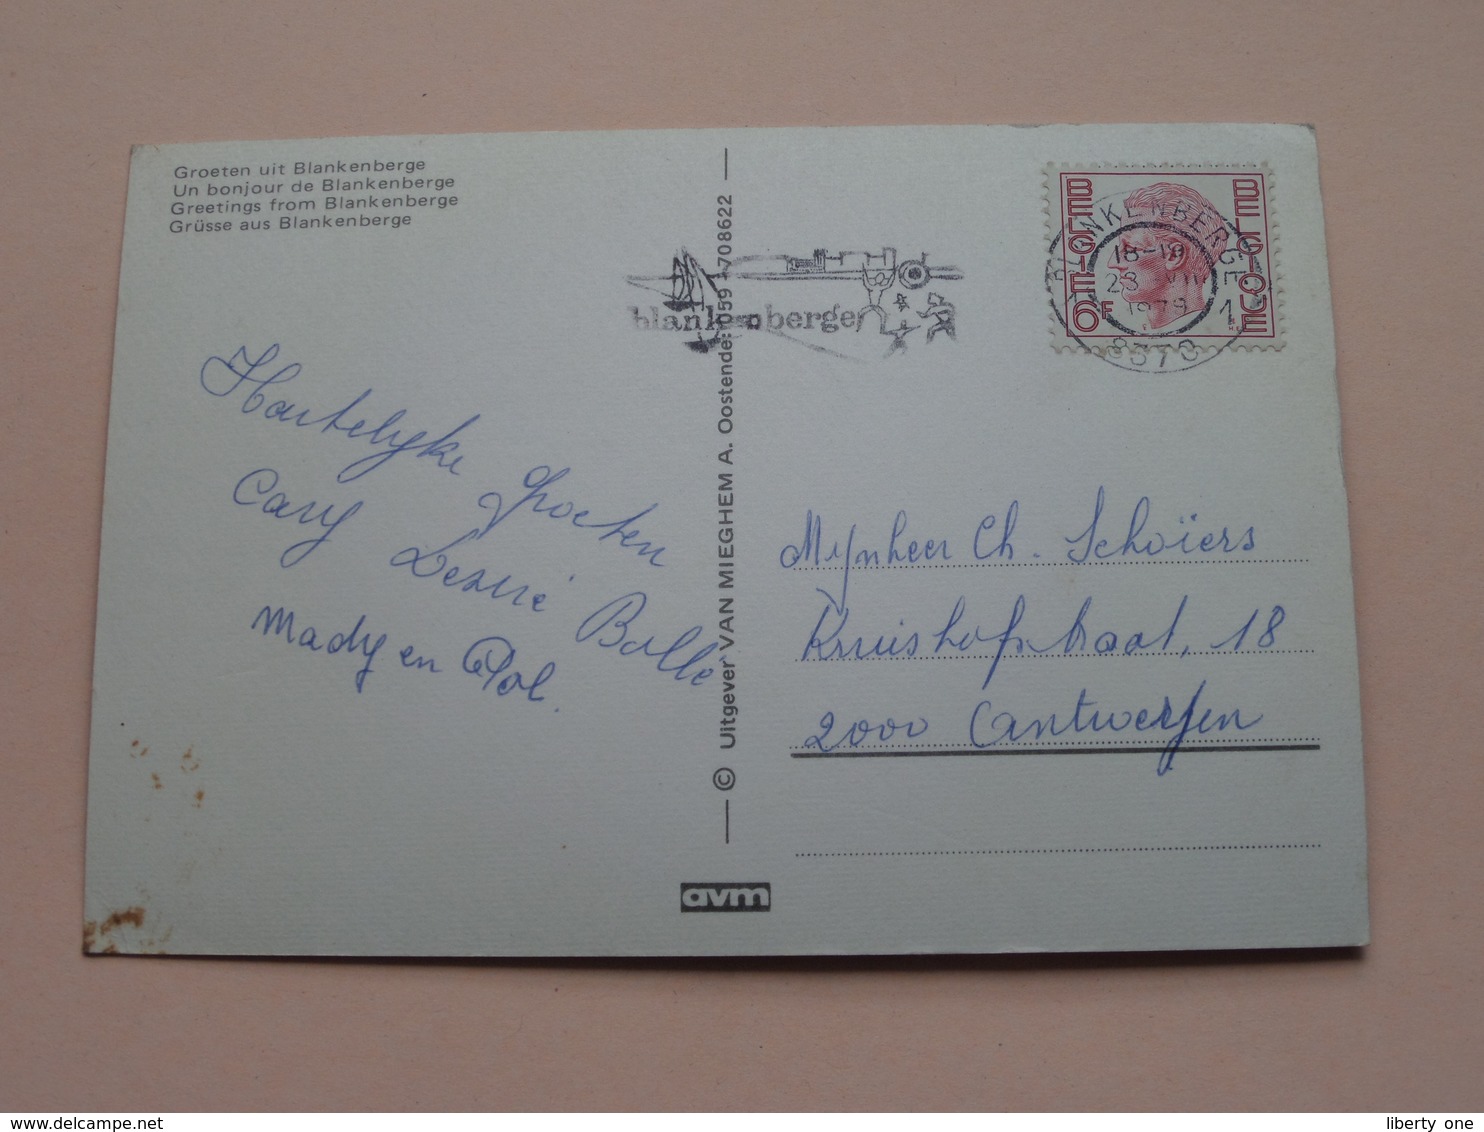 Groeten uit Blankenberge
Un bonjour de Blankenberge
Greetings from Blankenberge
Grüsse aus Blankenberge
Hartelijke Groeten
Cary Desiré Bollé
Mady en Pol.
© Uitgever VAN MIEGHEM A. Oostende: 059 - 708622
avm
blankenberge
BELGIE BELGIQUE
6F
BLANKENBERGE
18-19
1979
1
8370
Mijnheer Ch. Schoïers
Kruishofstraat, 18
2000 Antwerpen
liberty one